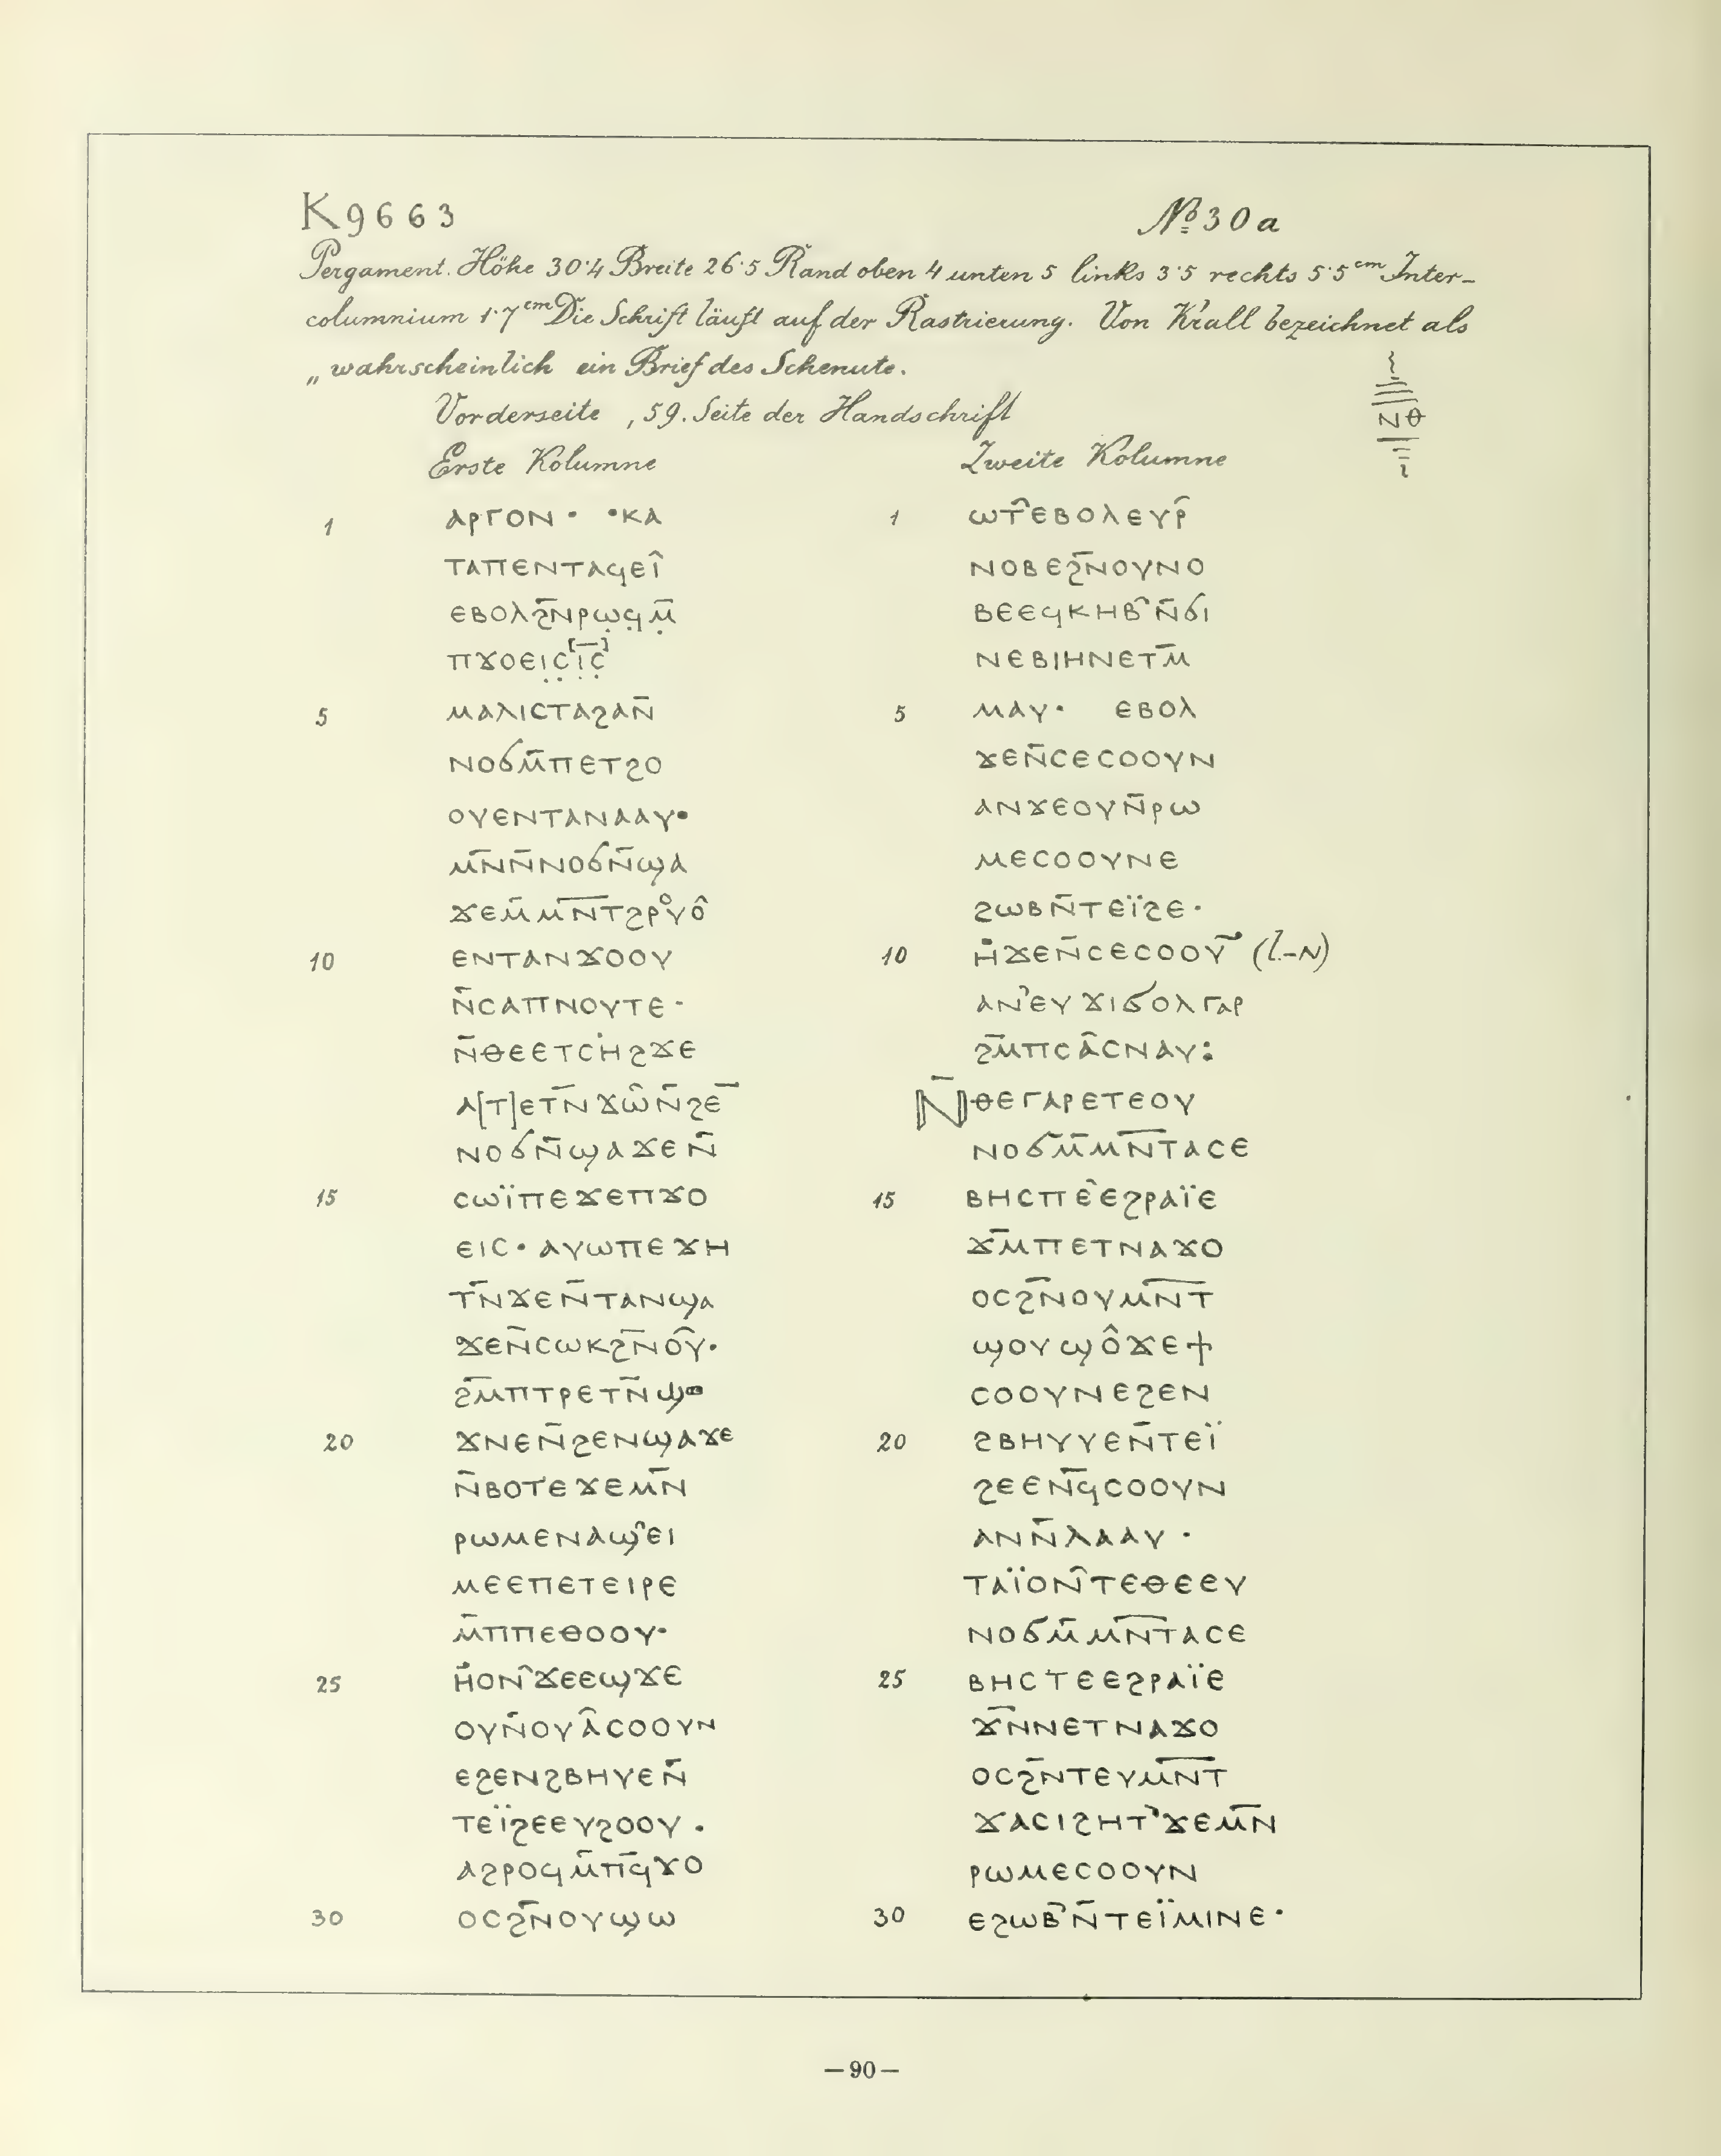 K 9663
№ 30 a
Pergament. Höhe 30·4 Breite 26·5 Rand oben 4 unten 5 links 3·5 rechts 5·5 cm Inter-
columnium 1·7 cm Die Schrift läuft auf der Rastrierung. Von Krall bezeichnet als
„wahrscheinlich ein Brief des Schenute.
ⲚⲐ
Vorderseite, 59. Seite der Handschrift
Erste Kolumne
1 ⲁⲣⲅⲟⲛ · ·ⲕⲁ
ⲧⲁⲡⲉⲛⲧⲁϥⲉⲓ̂
ⲉⲃⲟⲗϩⲛ̄ⲣⲱ̣ϥ̣ⲙ̣̄
ⲡϫⲟⲉⲓ̣ⲥ̣ⲓ̣ⲥ̣[̅]
5 ⲙⲁⲗⲓⲥⲧⲁϩⲁⲛ̄
ⲛⲟϭⲙ̄ⲡⲉⲧϩⲟ
ⲟⲩⲉⲛⲧⲁⲛⲁⲁⲩ·
ⲙⲛ̄ⲛ̄ⲛⲟϭⲛ̄ϣⲁ
ϫⲉⲙ̄ⲙⲛ̄ⲧϩⲣⲟⲩⲟ̂
10 ⲉⲛⲧⲁⲛϫⲟⲟⲩ
ⲛ̄ⲥⲁⲡⲛⲟⲩⲧⲉ·
ⲛ̄ⲑⲉⲉⲧⲥⲏ̇ϩϫⲉ
ⲁ[ⲧ]ⲉⲧⲛ̄ϫⲱ̂ⲛ̄ϩⲉ̄
ⲛⲟϭⲛ̄ϣⲁϫⲉⲛ̄
15 ⲥⲱⲓ̈ⲡⲉϫⲉⲡϫⲟ
ⲉⲓⲥ· ⲁⲩⲱⲡⲉϫⲏ
ⲧⲛ̄ϫⲉⲛ̄ⲧⲁⲛϣⲁ
ϫⲉⲛ̄ⲥⲱⲕϩⲛ̄ⲟⲩ̂·
ϩⲙ̄ⲡⲧⲣⲉⲧⲛ̄ϣⲟ
20 ϫⲛⲉⲛ̄ϩⲉⲛϣⲁϫⲉ
ⲛ̄ⲃⲟⲧⲉϫⲉⲙⲛ̄
ⲣⲱⲙⲉⲛⲁϣ̂ⲉⲓ
ⲙⲉⲉⲡⲉⲧⲉⲓⲣⲉ
ⲙ̄ⲡⲡⲉⲑⲟⲟⲩ·
25 ⲏ̇ⲟⲛ̂ϫⲉⲉϣϫⲉ
ⲟⲩⲛ̄ⲟⲩⲁ̂ⲥⲟⲟⲩⲛ
ⲉϩⲉⲛϩⲃⲏⲩⲉⲛ̄
ⲧⲉⲓ̈ϩⲉⲉⲩϩⲟⲟⲩ·
ⲁϩⲣⲟϥⲙ̄ⲡϥ̄ϫⲟ
30 ⲟⲥϩⲛ̄ⲟⲩϣⲱ
Zweite Kolumne
1 ⲱⲧ̂ⲉⲃⲟⲗⲉⲩⲣ̂
ⲛⲟⲃⲉϩⲛ̄ⲟⲩⲛⲟ
ⲃⲉⲉϥⲕⲏⲃ̂ⲛ̄ϭⲓ
ⲛⲉⲃⲓⲏⲛⲉⲧⲙ̄
5 ⲙⲁⲩ· ⲉⲃⲟⲗ
ϫⲉⲛ̄ⲥⲉⲥⲟⲟⲩⲛ
ⲁⲛϫⲉⲟⲩⲛ̄ⲣⲱ
ⲙⲉⲥⲟⲟⲩⲛⲉ
ϩⲱⲃⲛ̄ⲧⲉⲓ̈ϩⲉ·
10 ⲏ̇ϫⲉⲛ̄ⲥⲉⲥⲟⲟⲩ̄ (l.-ⲛ)
ⲁⲛ̓ⲉⲩϫⲓϭⲟⲗⲅⲁⲣ
ϩⲙ̄ⲡⲥⲁ̂ⲥⲛⲁⲩ:
ⲛ̄ⲑⲉⲅⲁⲣⲉⲧⲉⲟⲩ
ⲛⲟϭⲙ̄ⲙⲛ̄ⲧⲁⲥⲉ
15 ⲃⲏⲥⲡⲉ̂ⲉϩⲣⲁⲓ̈ⲉ
ϫⲙ̄ⲡⲉⲧⲛⲁϫⲟ
ⲟⲥϩⲛ̄ⲟⲩⲙⲛ̄ⲧ
ϣⲟⲩϣⲟ̂ϫⲉϯ
ⲥⲟⲟⲩⲛⲉϩⲉⲛ
20 ϩⲃⲏⲩⲩⲉⲛ̄ⲧⲉⲓ̈
ϩⲉⲉⲛϥ̄ⲥⲟⲟⲩⲛ
ⲁⲛⲛ̄ⲗⲁⲁⲩ·
ⲧⲁⲓ̈ⲟⲛ̂ⲧⲉⲑⲉⲉⲩ
ⲛⲟϭⲙ̄ⲙⲛ̄ⲧⲁⲥⲉ
25 ⲃⲏⲥⲧⲉⲉϩⲣⲁⲓ̈ⲉ
ϫⲛ̄ⲛⲉⲧⲛⲁϫⲟ
ⲟⲥϩⲛ̄ⲧⲉⲩⲙⲛ̄ⲧ
ϫⲁⲥⲓϩⲏⲧ̓ϫⲉⲙⲛ̄
ⲣⲱⲙⲉⲥⲟⲟⲩⲛ
30 ⲉϩⲱⲃ̂ⲛ̄ⲧⲉⲓ̈ⲙⲓⲛⲉ·
— 90 —